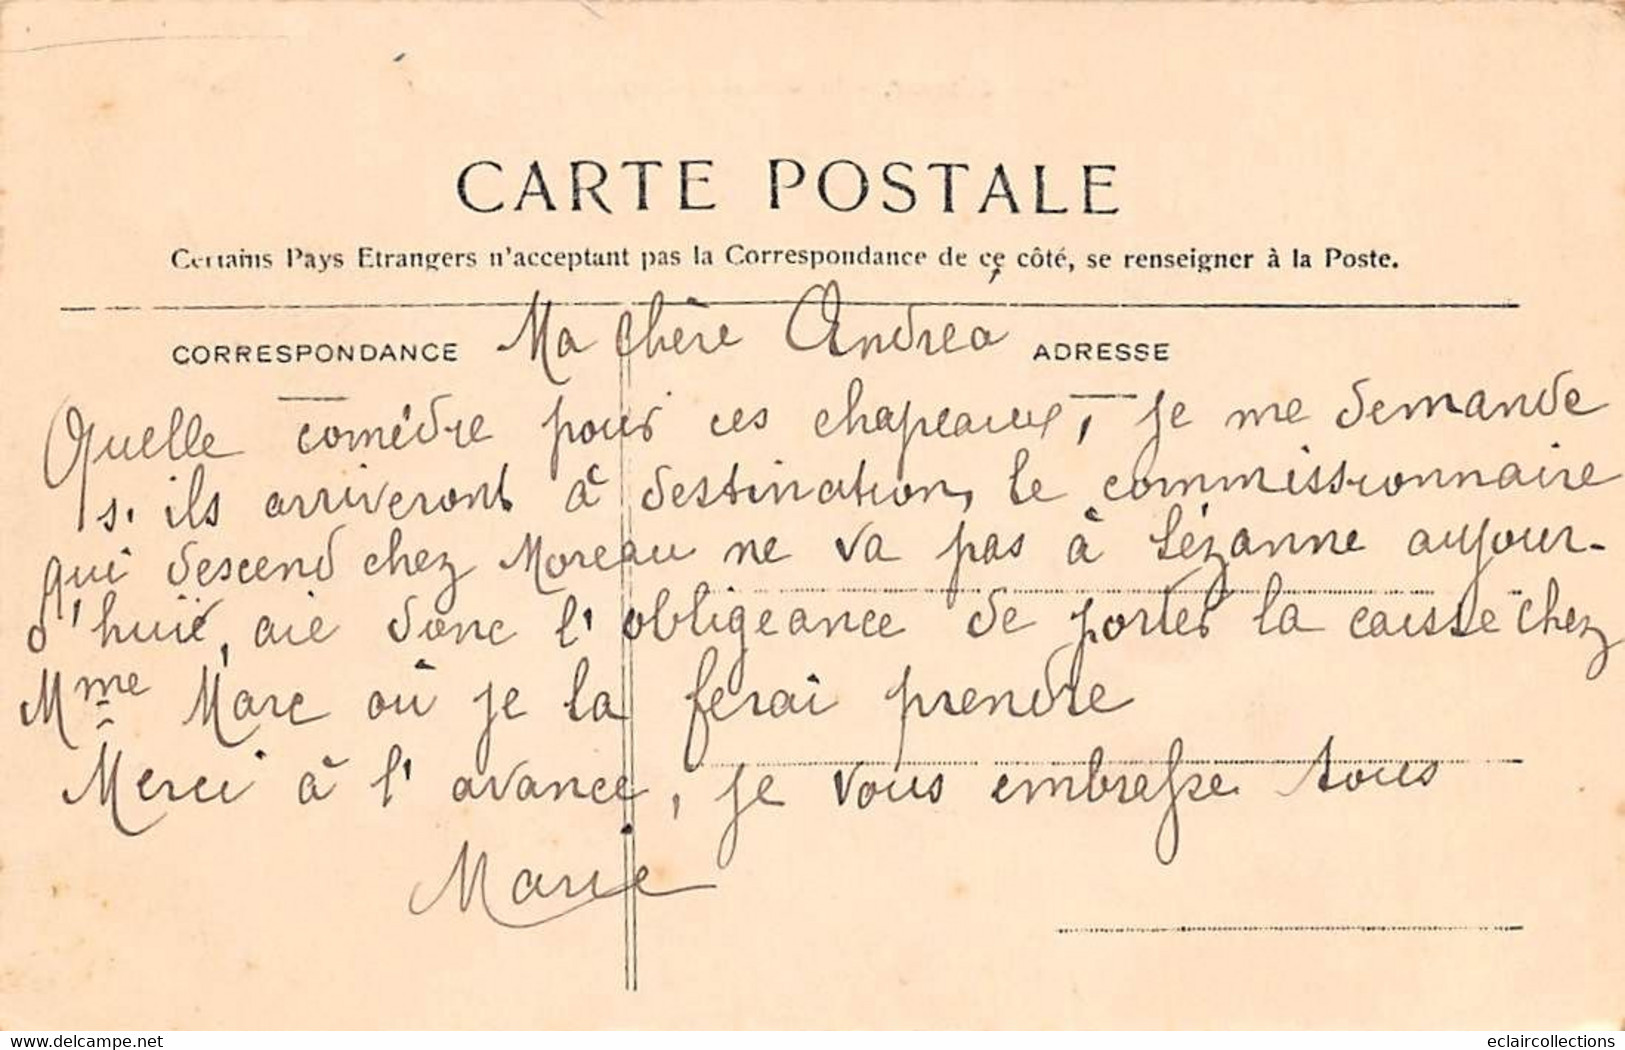 CARTE POSTALE
Certains Pays Etrangers n'acceptant pas la Correspondance de ce côté, se renseigner à la Poste.
CORRESPONDANCE
ADRESSE
Ma chère Andréa
Quelle comédie pour ces chapeaux, je me demande
s'ils arriveront à destination, le commissionnaire
qui descend chez Moreau ne va pas à Sézanne aujour-
d'hui, aie donc l'obligeance de porter la caisse chez
Mme Marc où je la ferai prendre
Merci à l'avance, je vous embrasse tous
Marie
delcampe.net
eclaircollections